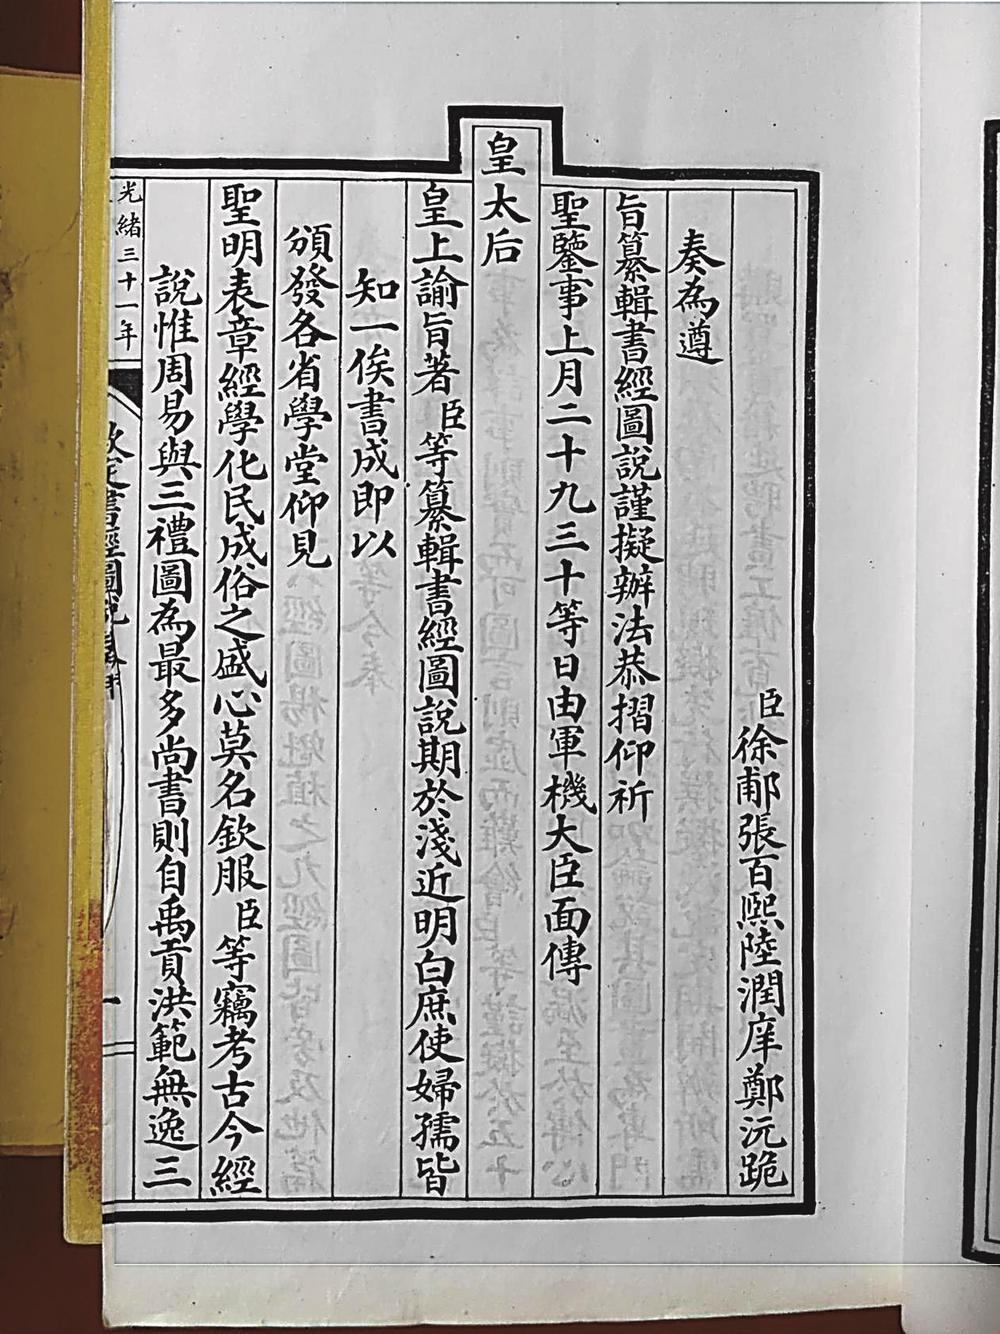 臣徐郙張百熙陸潤庠鄭沅跪
奏為遵
旨纂輯書經圖說謹擬辦法恭摺仰祈
聖鑒事上月二十九三十等日由軍機大臣面傳
皇太后
皇上諭旨著臣等纂輯書經圖說期於淺近明白庶使婦孺皆
知一俟書成即以
頒發各省學堂仰見
聖明表章經學化民成俗之盛心莫名欽服臣等竊考古今經
說惟周易與三禮圖為最多尚書則自禹貢洪範無逸三
光緒三十一年
欽定書經圖說